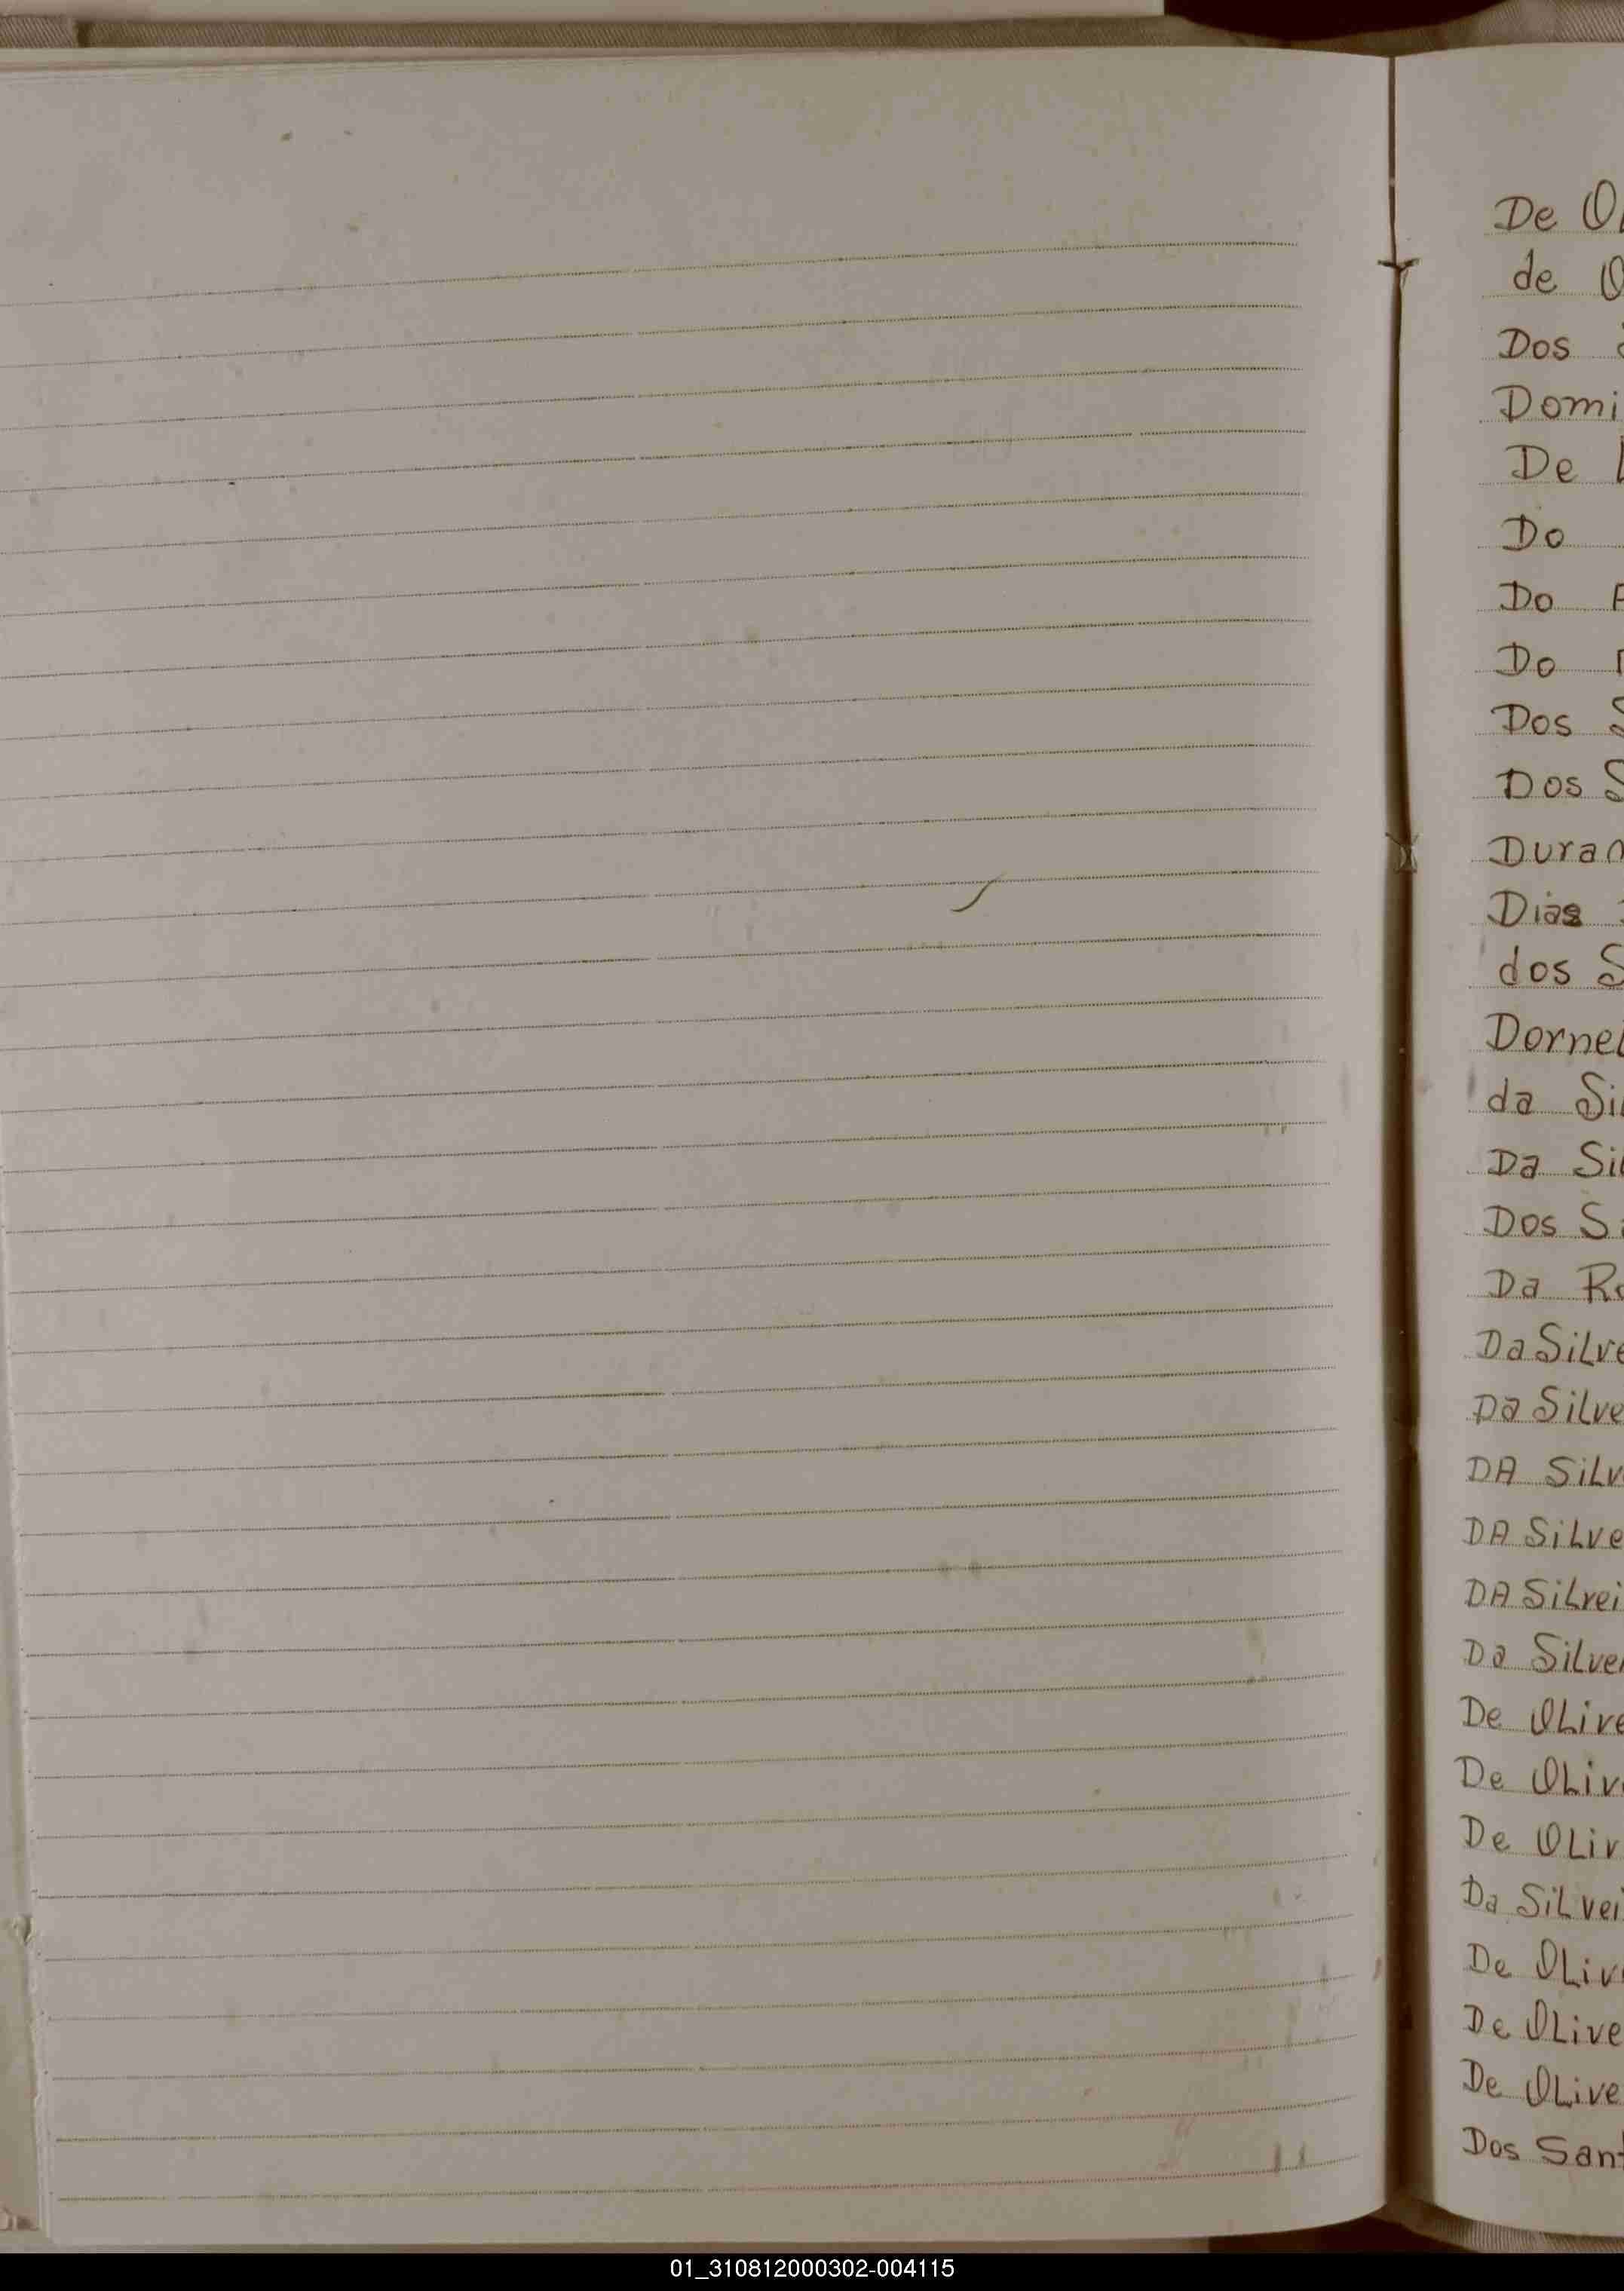 De
de
Dos
Domi
De
Do
Do
Do
Dos
Dos S
Duran
Dias
dos S
Dornel
da Sil
Da Sil
Dos Sa
Da Ro
Da Silve
Da Silve
DA SiLv
DA SiLve
DA SiLvei
Da Silvei
De OLive
De OLiv
De OLiv
Da SiLvei
De OLiv
De OLive
De OLive
Dos Sant
01_310812000302-004115